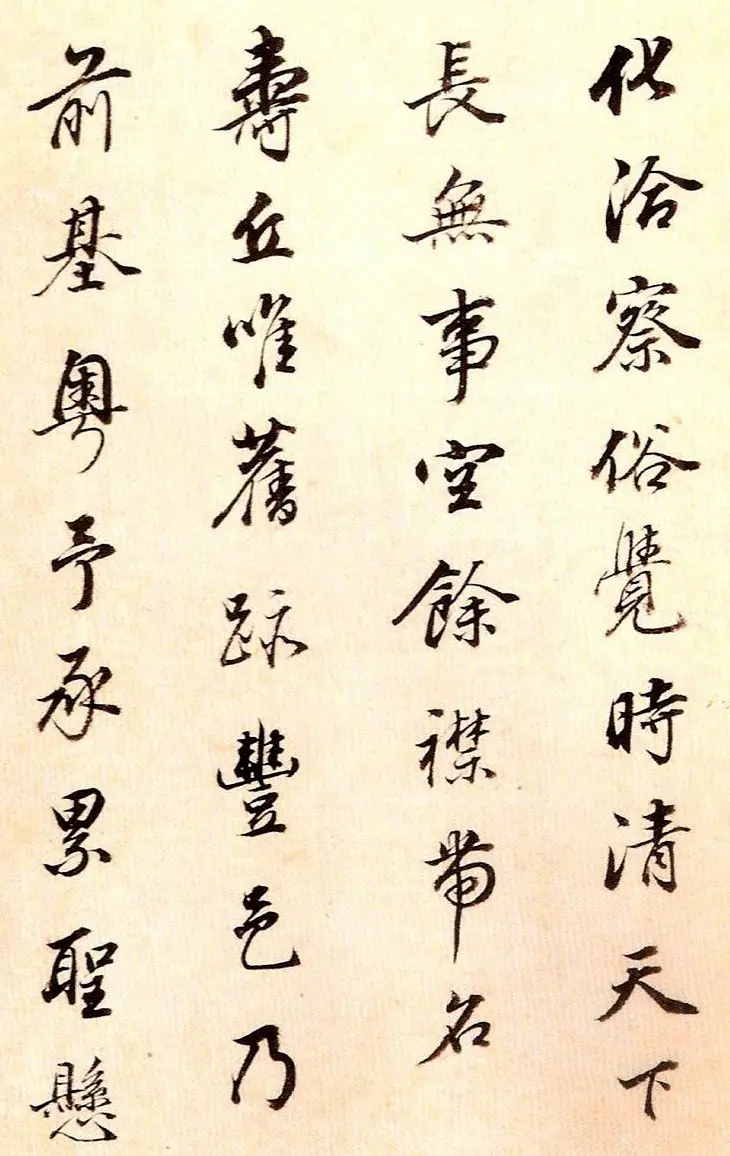 化洽察俗覺時清天下
長無事空餘襟帶名
壽丘唯舊跡豐邑乃
前基粵予承累聖懸